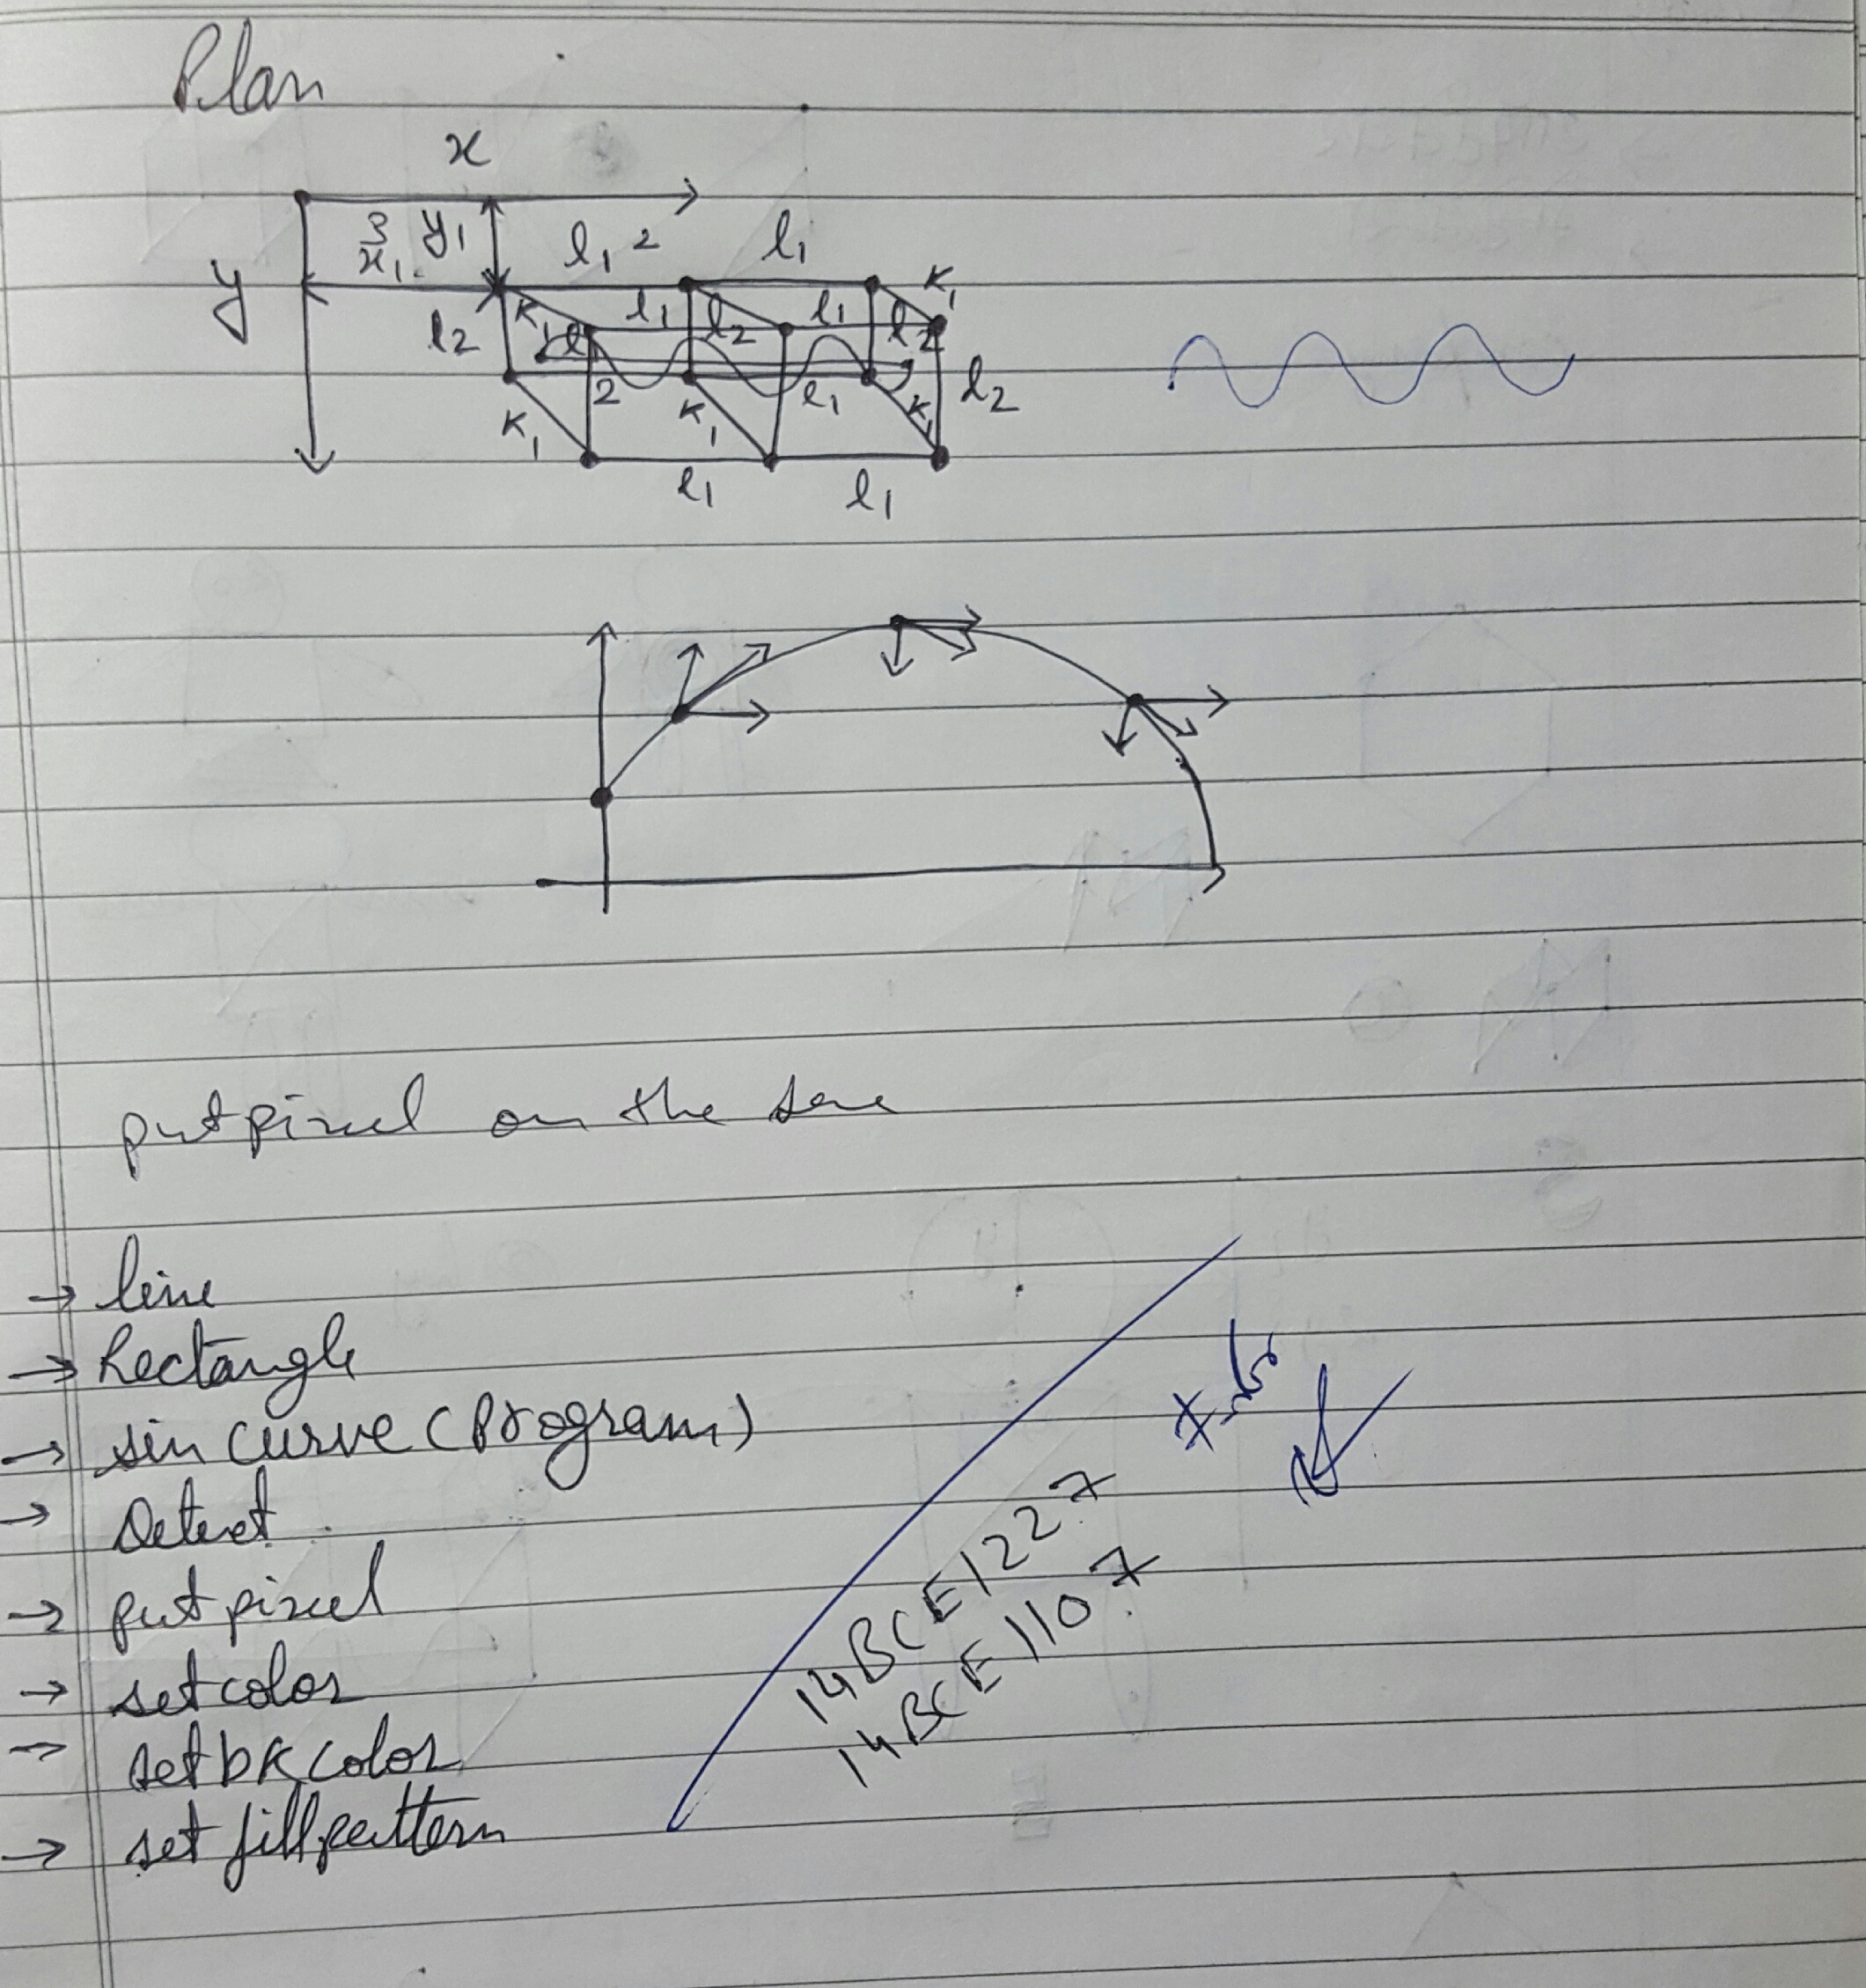 Plan
x
3 y1 l1 2 l1
x1
y K1
l2 K1 l1 l2 l1 l2
2 l1 l2
K1 K1 K1
l1 l1
putpixel on the
→ line
→ Rectangle
→ sin curve (Program)
→ Detect
→ putpixel
→ setcolor
→ setbkcolor
→ set fillpattern
14BCE1227
14BCE1107